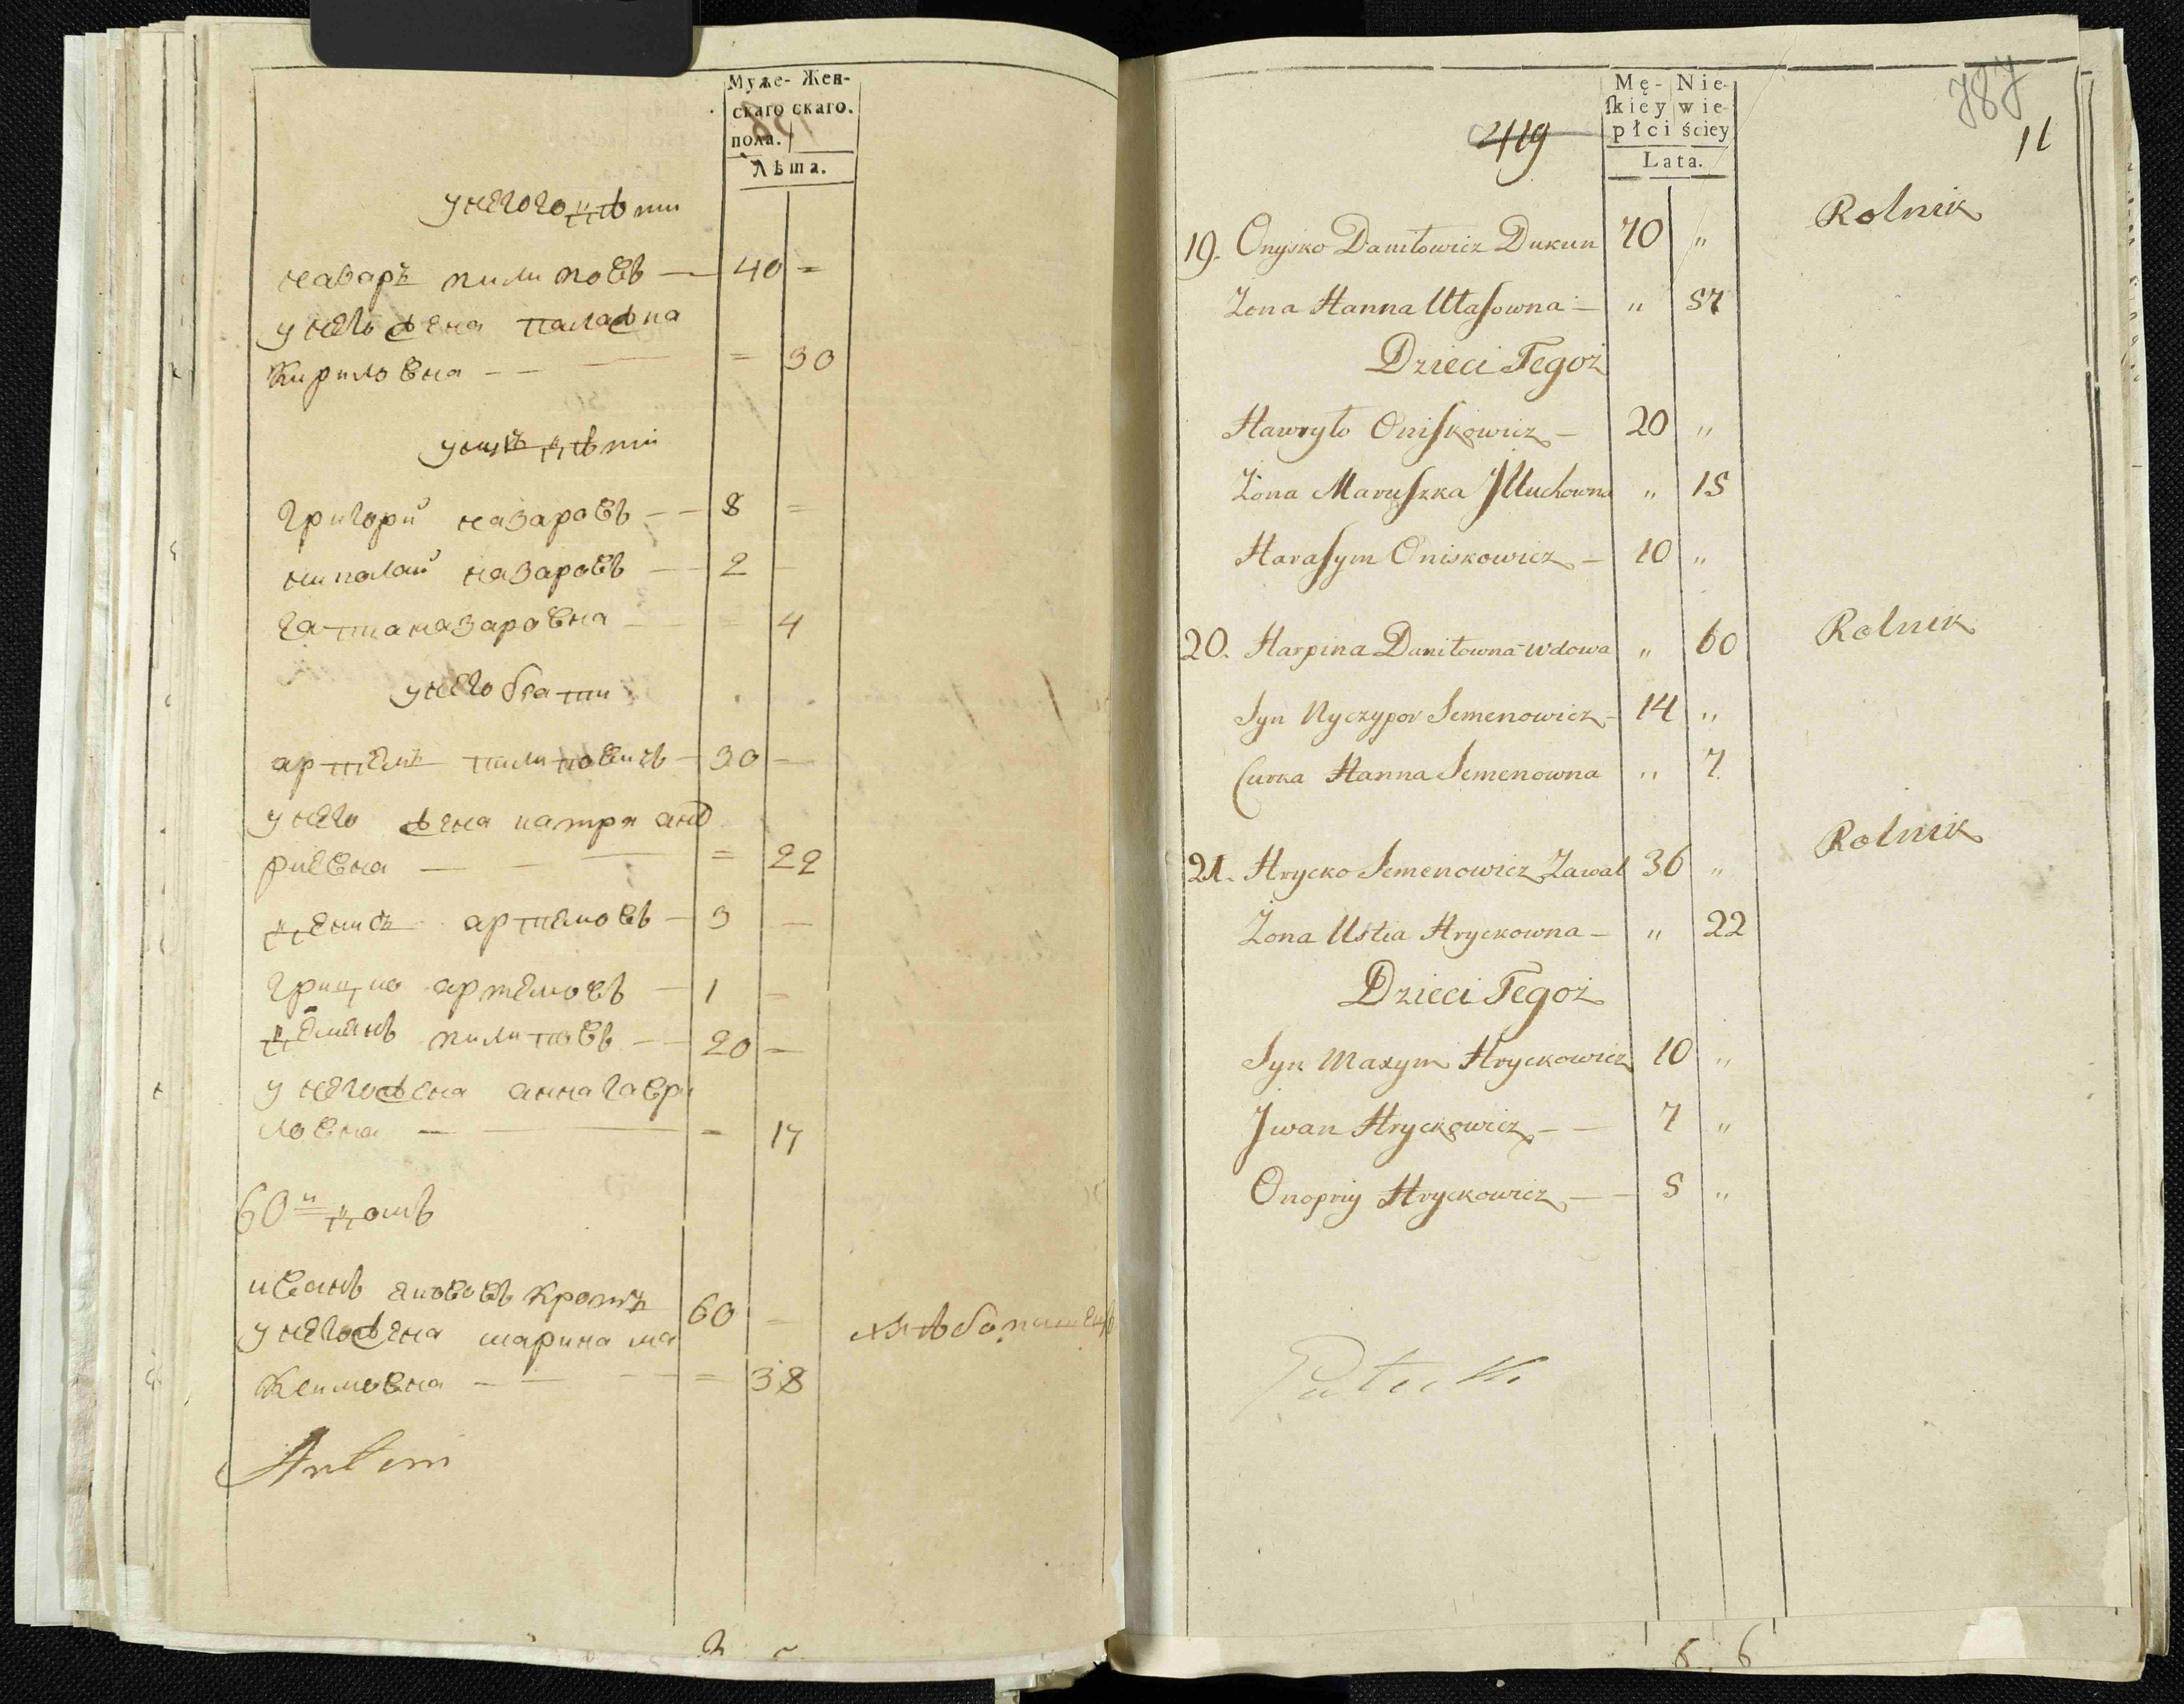 Муже- Жен-
скаго скаго.
пола.
Лѣта.
у него го дѣти
назаръ пилиповъ — 40 =
у него жена палажка
кириловна — — = 30
у нихъ дѣти
григорй назаровъ — — 8 =
николай назаровъ — 2 —
гапка назаровна — = 4
у него брати
артемъ пилиповичъ — 30 —
у него жена катря анд
риевна — = 22
денисъ артемовъ — 3 —
грицко артемовъ — 1 —
демянъ пилиповъ — 20 —
у него жена анна гаври
ловна — = 17
60й домъ
иванъ яковъ кротъ 60 —
у него жена марина ма
ксимовна — — = 38
хлѣбопашецъ
787
11
419
Mę- Nie-
ſkiey wie-
płci ściey
Lata.
19. Onysko Daniłowicz Dukun 70 „ Rolnik
Zona Hanna Utaſowna — „ 57
Dzieci Tegoż
Hawryło Oniſkowicz — 20 „
Żona Maruſzka Jlluchowna „ 15
Haraſym Oniskowicz — 10 „
20. Harpina Daniłowna wdowa „ 60 Rolnik
Syn Nyczypor Semenowicz — 14 „
Curka Hanna Semenowna „ 7
21. Hrycko Semenowicz Zawał 36 „ Rolnik
Żona Ustia Hryckowna — „ 22
Dzieci Tegoż
Syn Maxym Hryckowicz 10 „
Jwan Hryckowicz — — 7 „
Onopriy Hryckowicz — — 5 „
6 6